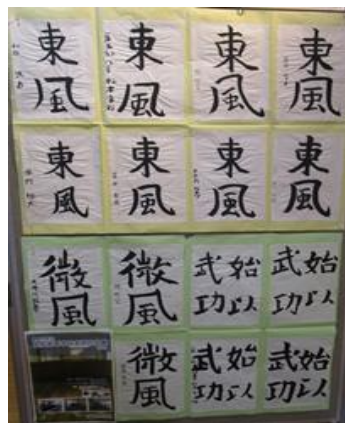 東風
東風
東風
東風
東風
東風
東風
東風
微風
微風
始以
武功
始以
武功
微風
始以
武功
始以
武功